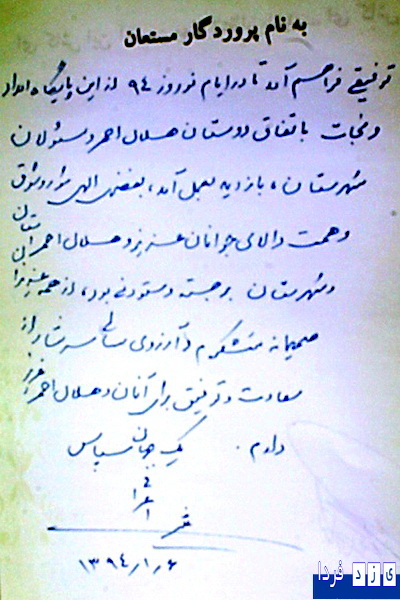 به نام پروردگار مستعان
توفیقی فراهم آمد تا در ایام نوروز ۹۴ از این پایگاه امداد
و نجات باتفاق دوستان هلال احمر و مسئولان
شهرستان، بازدید بعمل آمد، بفضل الهی شور و شوق
و همت والای جوانان عزیز هلال احمر استان
و شهرستان برجسته و ستودنی بود، از همه عزیزان
صمیمانه متشکرم و آرزوی سالی سرشار از
سعادت و توفیق برای آنان و هلال احمر عزیز
دارم. یک جهان سپاس
۶/۱/۱۳۹۴
یزد فردا